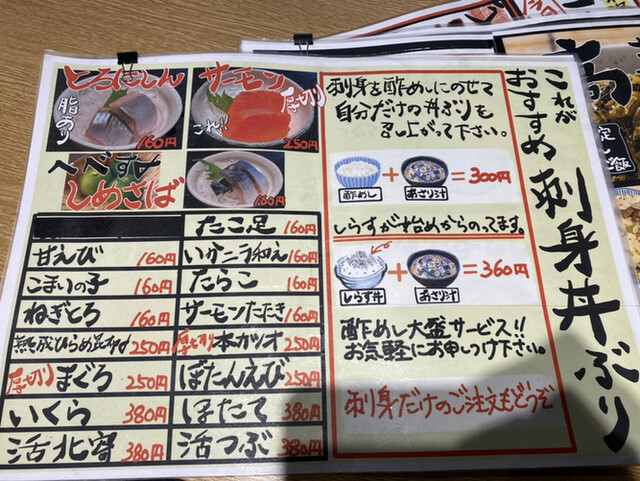 これが
おすすめ刺身丼ぶり
とろにしん
脂あり
160円
サーモン
厚切り
これ!!
250円
へべす〆
しめさば
160円
たこ足 160円
甘えび 160円
いかニラ和え 160円
こまいの子 160円
たらこ 160円
ねぎとろ 160円
サーモンたたき 160円
熟成ひらめ昆布〆 250円
厚切り 本カツオ 250円
厚切り まぐろ 250円
ぼたんえび 250円
いくら 380円
ほたて 380円
活北寄 380円
活つぶ 380円
刺身を酢めしにのせて
自分だけの丼ぶりも
召し上がって下さい。
酢めし + あさり汁 = 300円
しらすが始めからのってます。
しらす丼 + あさり汁 = 360円
酢めし大盛サービス!!
お気軽にお申しつけ下さい。
刺身だけのご注文もどうぞ